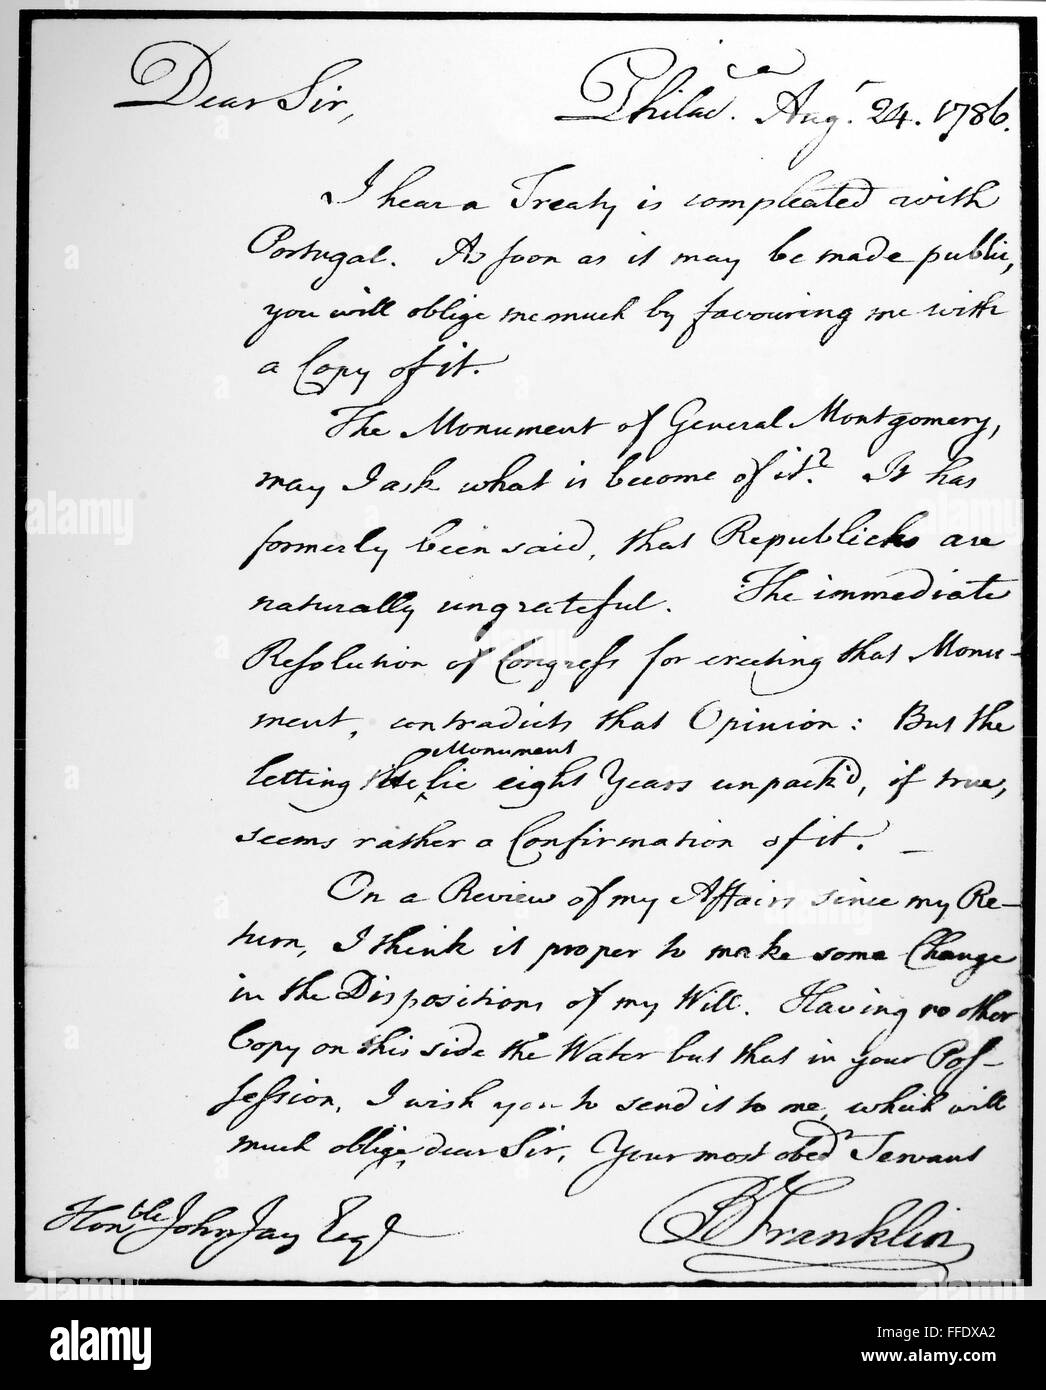 Dear Sir,
Philad.ª Aug.t 24. 1786.
I hear a Treaty is compleated with
Portugal. As soon as it may be made public,
you will oblige me much by favouring me with
a Copy of it.
The Monument of General Montgomery,
may I ask what is become of it? It has
formerly been said, that Republicks are
naturally ungrateful. The immediate
Resolution of Congress for erecting that Monu-
ment, contradicts that Opinion: But the
letting the Monument lie eight Years unpack'd, if true,
seems rather a Confirmation of it. —
On a Review of my Affairs since my Re-
turn, I think it proper to make some Change
in the Dispositions of my Will. Having no other
Copy on this side the Water but that in your Pos-
session, I wish you to send it to me, which will
much oblige, dear Sir, Your most obed.t Servant
B Franklin
Honble John Jay Esq.r
alamy
Image ID: FFDXA2
www.alamy.com